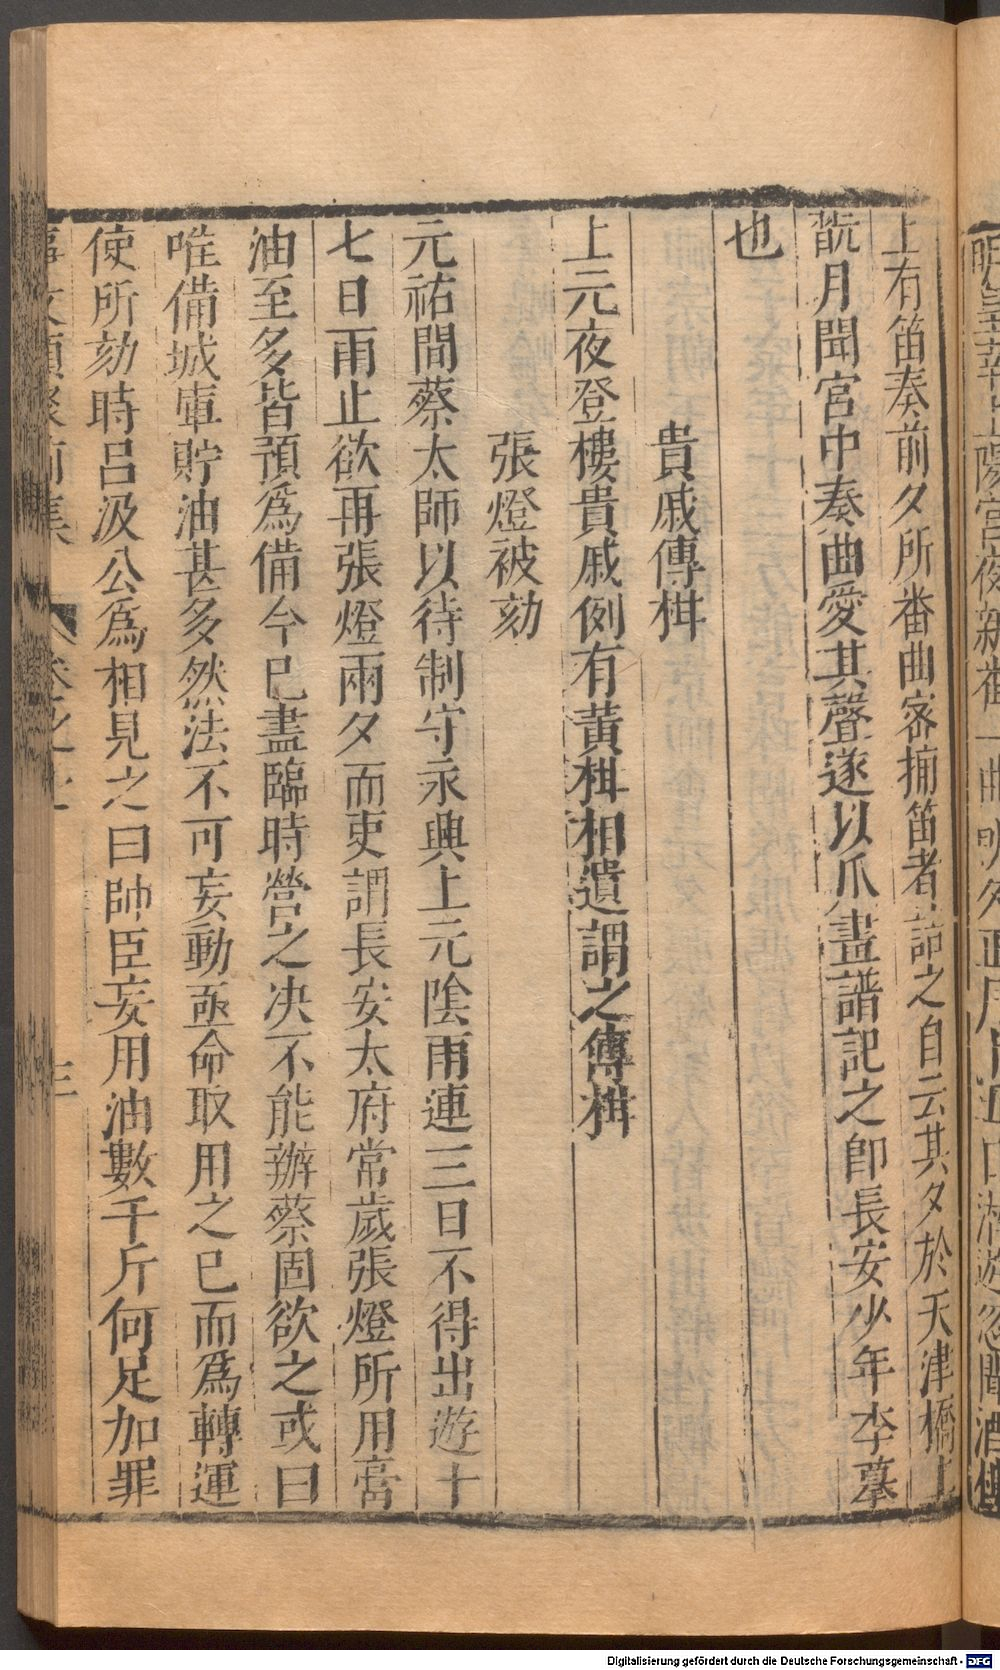 上有笛奏前夕所番曲宻捕笛者詰之自云其夕於天津橋上
翫月聞宮中奏曲愛其聲遂以爪畫譜記之即長安少年李謩
也
貴戚傳柑
上元夜登樓貴戚例有黃柑相遺謂之傳柑
張燈被劾
元祐間蔡太師以待制守永興上元陰雨連三日不得出遊十
七日雨止欲再張燈兩夕而吏謂長安太府常歲張燈所用膏
油至多皆預爲備今已盡臨時營之决不能辦蔡固欲之或曰
唯備城庫貯油甚多然法不可妄動亟命取用之已而爲轉運
使所劾時呂汲公爲相見之曰帥臣妄用油數千斤何足加罪
事文類聚前集
卷之七
三
Digitalisierung gefördert durch die Deutsche Forschungsgemeinschaft - DFG